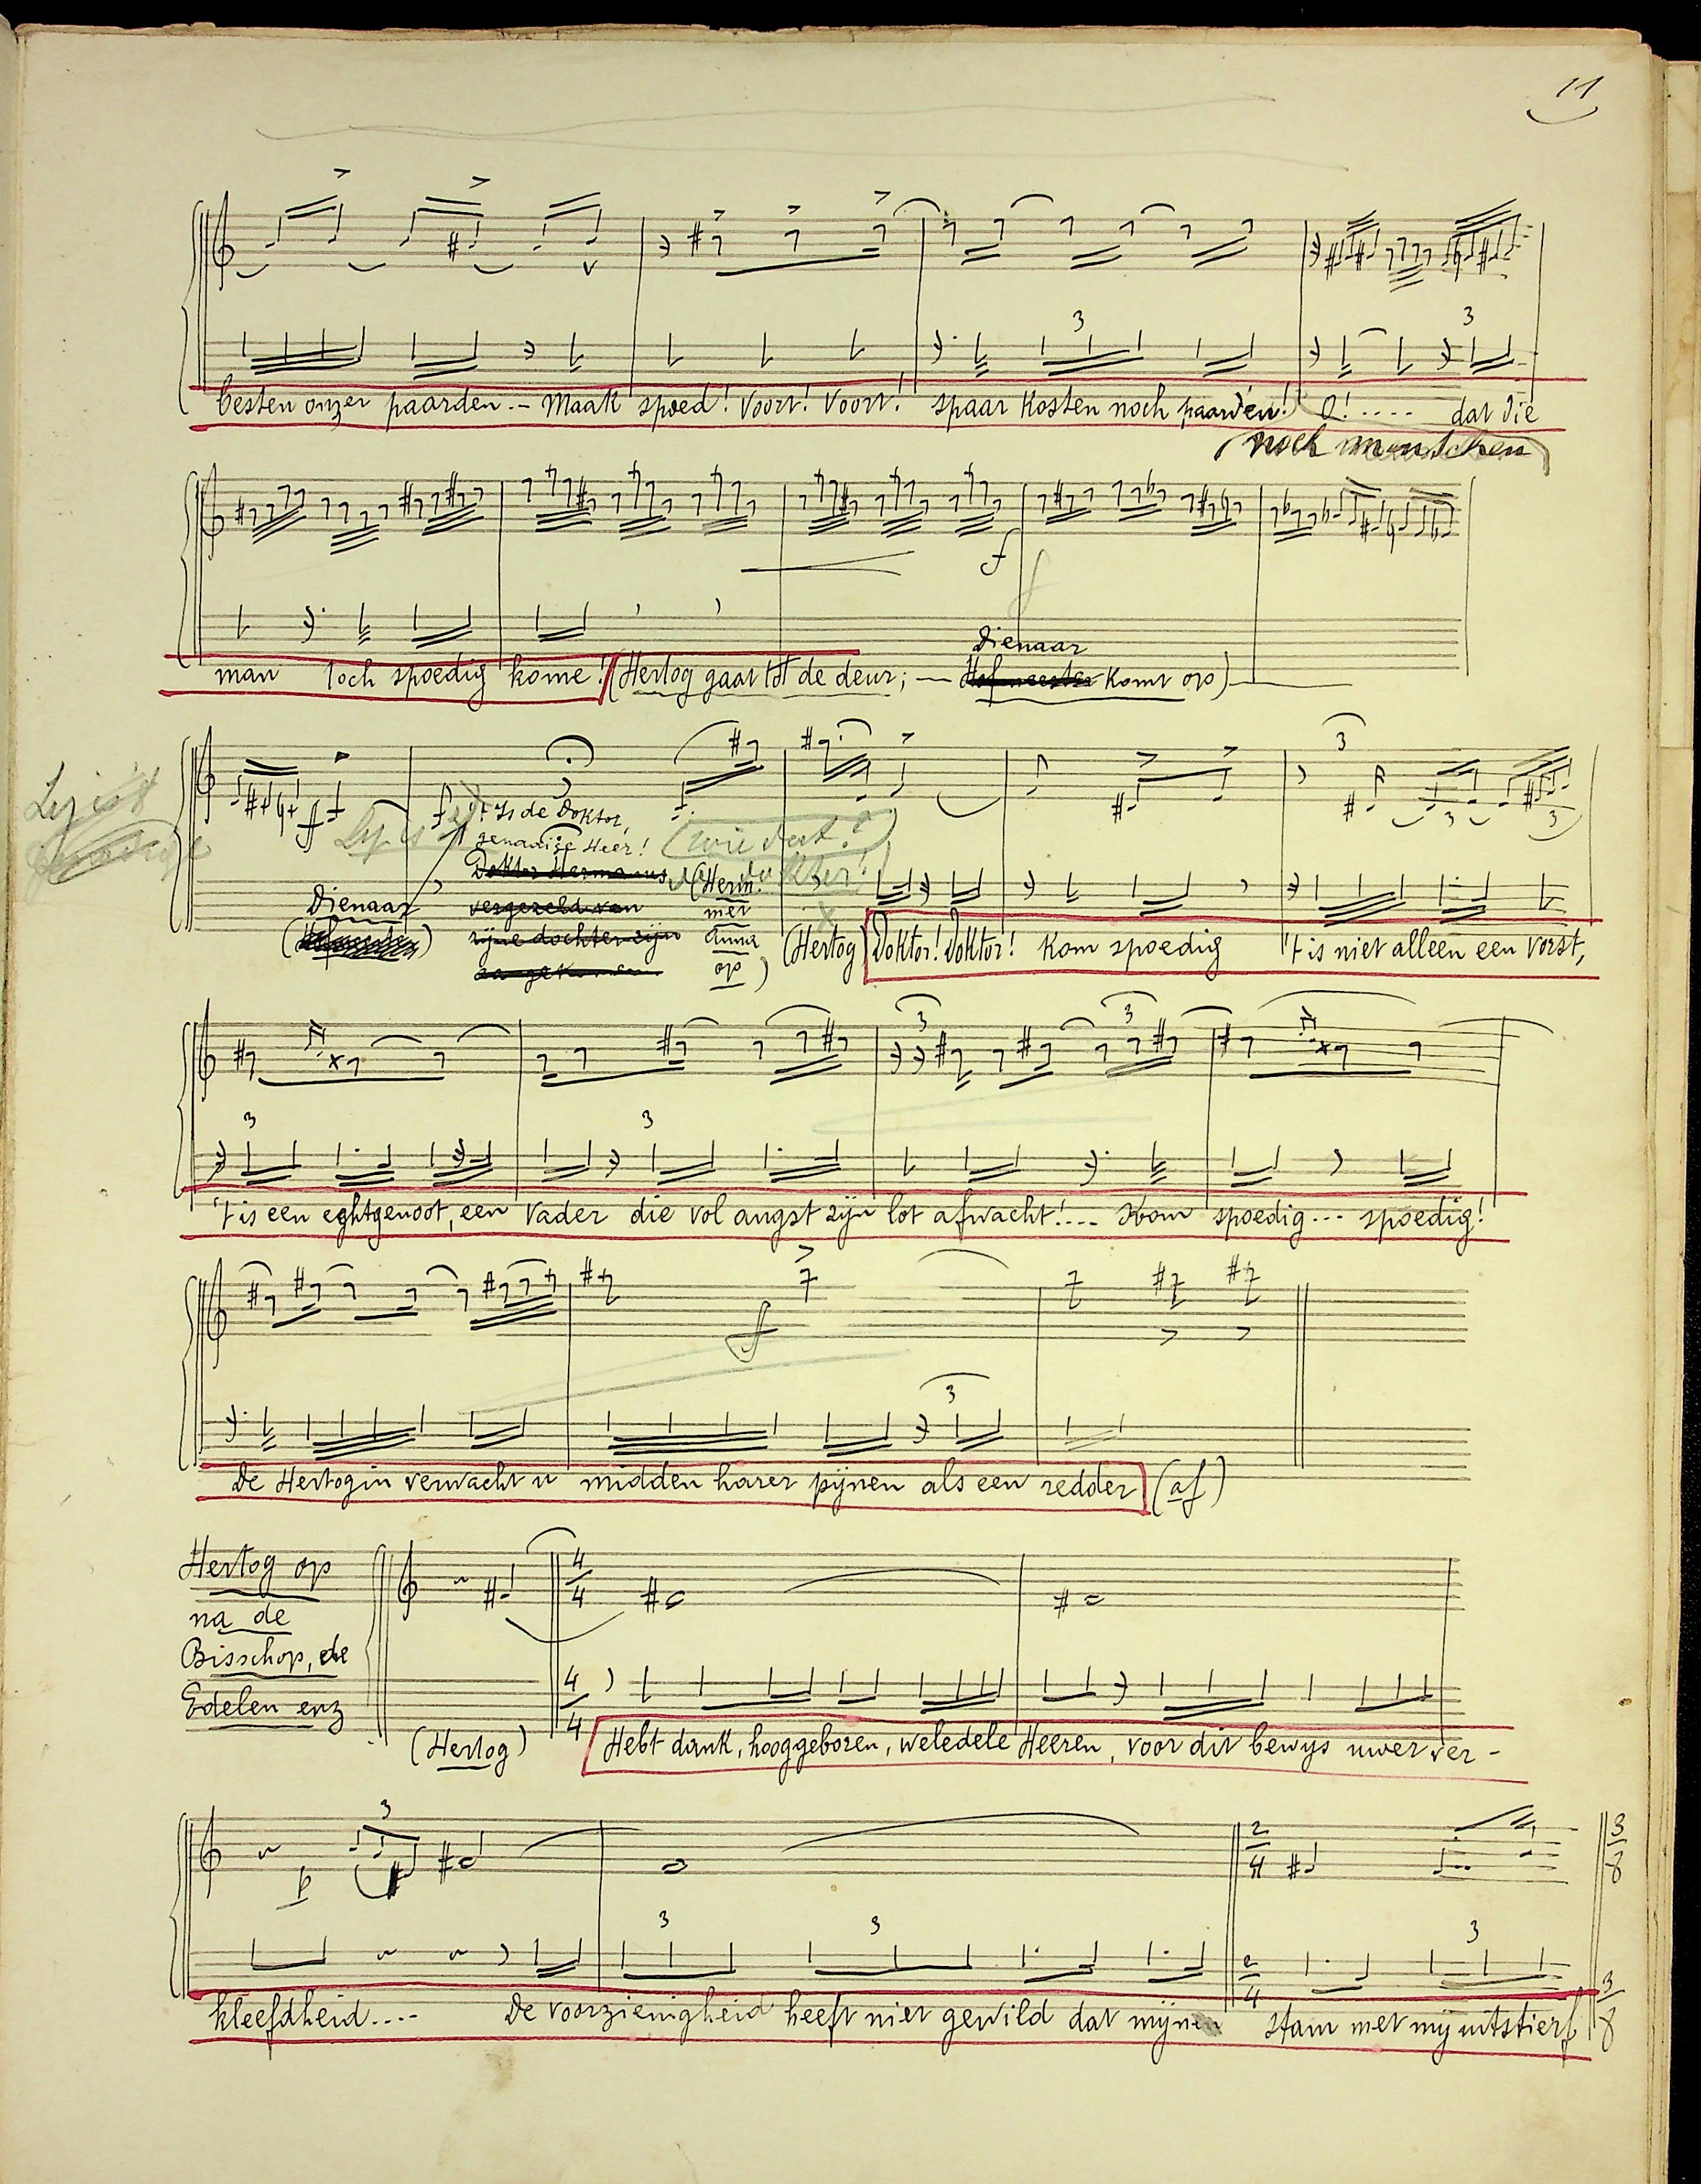 11
besten onzer paarden.- Maak spoed! Voort! Voort! spaar kosten noch paarden! O!.... dat die
noch menschen
man toch spoedig kome! (Hertog gaat tot de deur; — Hofmeester komt op)
Dienaar
't Is de Doktor,
genadige Heer!
(wie dat?
Doktor Hermanus
vergezeld van
zijne dochter zijn
aangekomen
Dienaar
(Hofmeester)
(Herm.
met
Anna
op)
(Hertog) Doktor! Doktor! Kom spoedig 't is niet alleen een vorst,
't is een eghtgenoot, een vader die vol angst zijn lot afwacht!.... Kom spoedig... spoedig!
De Hertogin verwacht u midden harer pijnen als een redder (af)
Hertog op
na de
Bisschop, de
Edelen enz
(Hertog) Hebt dank, hooggeboren, weledele Heeren, voor dit bewijs uwer ver-
kleefdheid.... De voorzienigheid heeft niet gewild dat mijnen stam met mij uitstierf